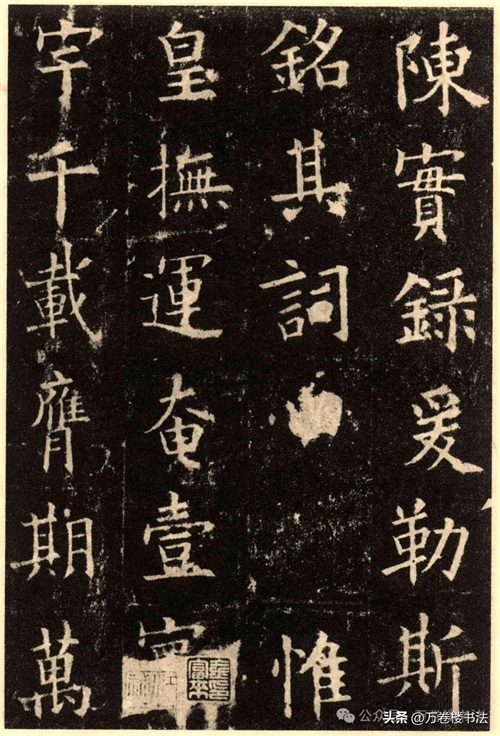 陳實錄爰勒斯
銘其詞惟
皇撫運奄壹寰
宇千載膺期萬
头条 @万卷楼书法